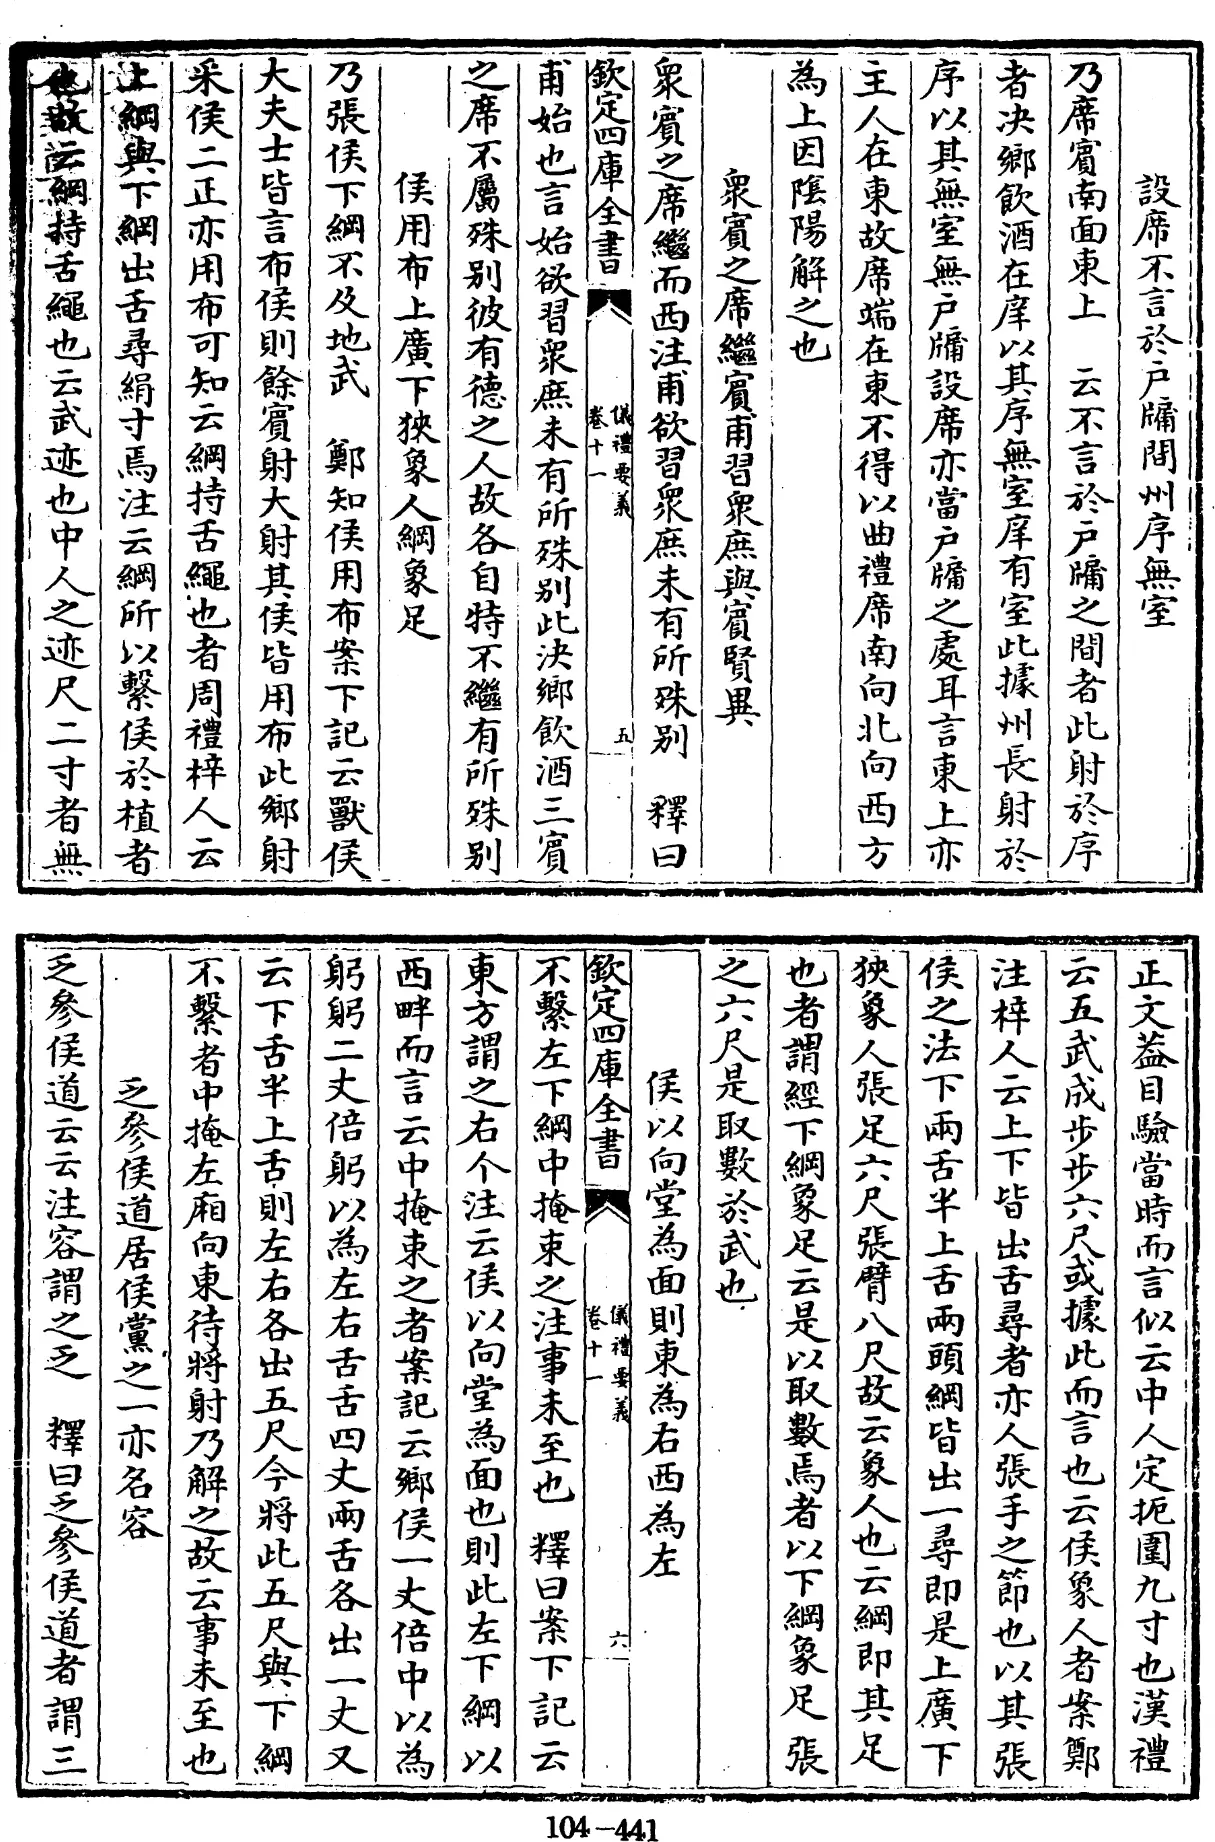 設席不言於户牖間州序無室
乃席賓南面東上　云不言於户牖之間者此射於序
者決鄉飲酒在庠以其序無室庠有室此據州長射於
序以其無室無户牖設席亦當户牖之處耳言東上亦
主人在東故席端在東不得以曲禮席南向北向西方
為上因隂陽解之也
衆賓之席繼賓甫習衆庶與賓賢異
衆賓之席繼而西注甫欲習衆庶未有所殊别　釋曰
欽定四庫全書
儀禮要義
卷十一
五
甫始也言始欲習衆庶未有所殊别此决鄉飲酒三賓
之席不屬殊别彼有德之人故各自特不繼有所殊别
侯用布上廣下狹象人綱象足
乃張侯下綱不及地武　鄭知侯用布案下記云獸侯
大夫士皆言布侯則餘賓射大射其侯皆用布此鄉射
采侯二正亦用布可知云綱持舌繩也者周禮梓人云
上綱與下綱出舌尋絹寸焉注云綱所以繫侯於植者
也故云綱持舌繩也云武迹也中人之迹尺二寸者無
正文葢目驗當時而言似云中人定扼圍九寸也漢禮
云五武成步步六尺或據此而言也云侯象人者案鄭
注梓人云上下皆出舌尋者亦人張手之節也以其張
侯之法下兩舌半上舌兩頭綱皆出一尋即是上廣下
狹象人張足六尺張臂八尺故云象人也云綱即其足
也者謂經下綱象足云是以取數焉者以下綱象足張
之六尺是取數於武也
侯以向堂為面則東為右西為左
欽定四庫全書
儀禮要義
卷十一
六
不繫左下綱中掩束之注事未至也　釋曰案下記云
東方謂之右个注云侯以向堂為面也則此左下綱以
西畔而言云中掩束之者案記云鄉侯一丈倍中以為
躬躬二丈倍躬以為左右舌舌四丈兩舌各出一丈又
云下舌半上舌則左右各出五尺今將此五尺與下綱
不繫者中掩左廂向東待將射乃解之故云事未至也
乏參侯道居侯黨之一亦名容
乏參侯道云云注容謂之乏　釋曰乏參侯道者謂三
104-441